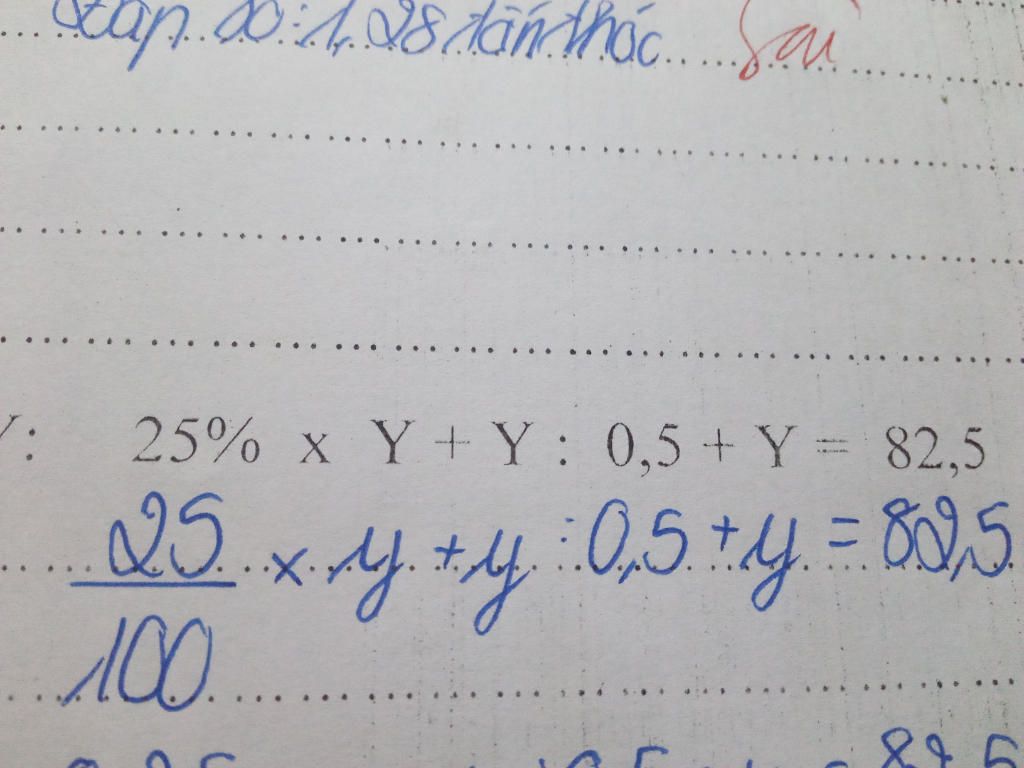 Đáp số: 1,28 tấn thóc Sai
Y: 25% x Y + Y : 0,5 + Y = 82,5
25
× y + y : 0,5 + y = 82,5
100